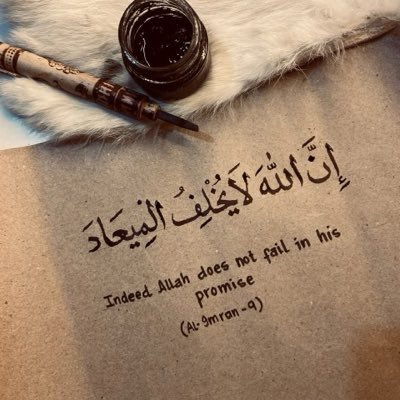 إِنَّ اللَّهَ لَا يُخْلِفُ الْمِيعَادَ
Indeed Allah does not fail in his
promise
(Al-Imran-9)